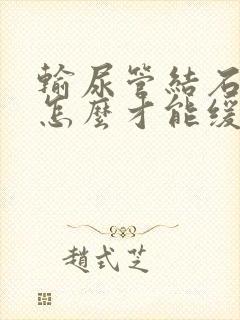 輸尿管結石
怎麼才能緩
趙式芝